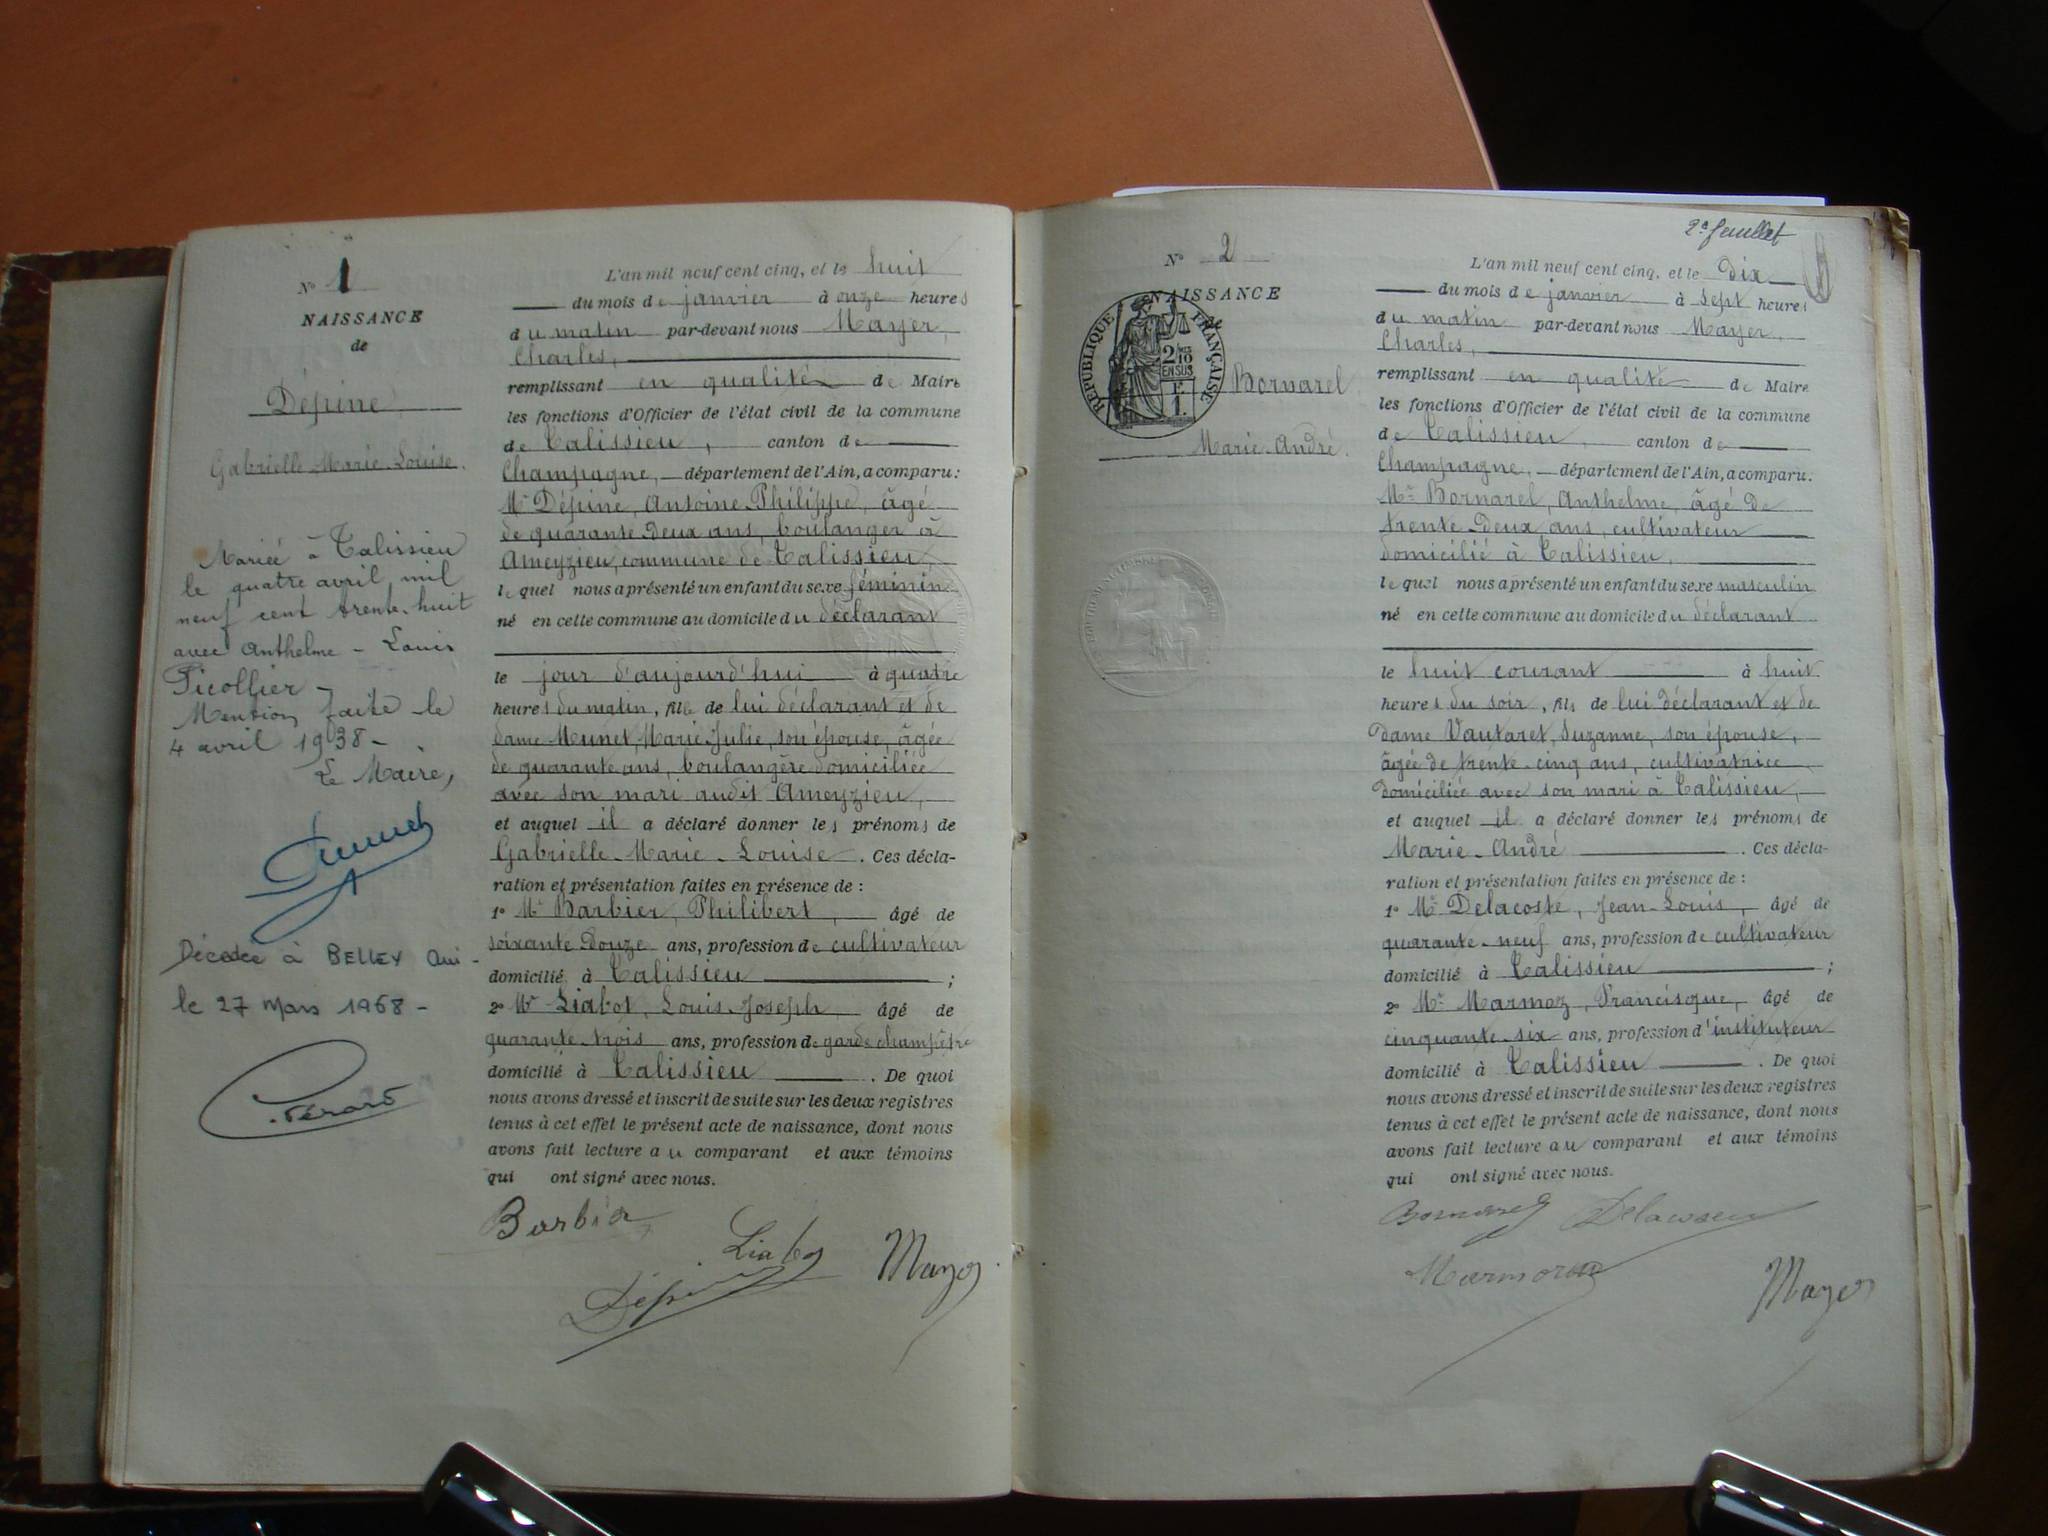 N° 1
NAISSANCE
de
Dépine
Gabrielle-Marie-Louise.
Mariée à Talissieu
le quatre avril mil
neuf cent trente-huit
avec Anthelme-Louis
Picollier -
Mention faite le
4 avril 1938 -
Le Maire,
Décédée à BELLEY Ain -
le 27 Mars 1968 -
L'an mil neuf cent cinq, et le huit
du mois de janvier à onze heures
du matin par-devant nous Mayer,
Charles,
remplissant en qualité de Maire
les fonctions d'Officier de l'état civil de la commune
de Talissieu, canton de
Champagne, département de l'Ain, a comparu:
Mr Dépine, Antoine-Philippe, âgé
de quarante-deux ans, boulanger à
Ameyzieu, commune de Talissieu,
lequel nous a présenté un enfant du sexe féminin
né en cette commune au domicile du déclarant
le jour d'aujourd'hui à quatre
heures du matin, fille de lui déclarant et de
dame Munet, Marie-Julie, son épouse, âgée
de quarante ans, boulangère domiciliée
avec son mari audit Ameyzieu,
et auquel il a déclaré donner les prénoms de
Gabrielle-Marie-Louise. Ces décla-
ration et présentation faites en présence de :
1° Mr Barbier, Philibert, âgé de
soixante-douze ans, profession de cultivateur
domicilié à Talissieu ;
2° Mr Liabot, Louis-Joseph âgé de
quarante-trois ans, profession de garde champêtre
domicilié à Talissieu. De quoi
nous avons dressé et inscrit de suite sur les deux registres
tenus à cet effet le présent acte de naissance, dont nous
avons fait lecture au comparant et aux témoins
qui ont signé avec nous.
Barbier
Liabot
Dépine
Mayer
2e feuillet
N° 2
NAISSANCE
RÉPUBLIQUE FRANÇAISE
2/10
EN SUS
F
1.
Bornarel
Marie-André.
L'an mil neuf cent cinq, et le Dix
du mois de janvier à sept heures
du matin par-devant nous Mayer,
Charles,
remplissant en qualité de Maire
les fonctions d'Officier de l'état civil de la commune
de Talissieu, canton de
Champagne, département de l'Ain, a comparu:
Mr Bornarel, Anthelme, âgé de
trente-deux ans, cultivateur
domicilié à Talissieu,
lequel nous a présenté un enfant du sexe masculin
né en cette commune au domicile du déclarant
le huit courant à huit
heures du soir, fils de lui déclarant et de
dame Vautaret, Suzanne, son épouse,
âgée de trente-cinq ans, cultivatrice
domiciliée avec son mari à Talissieu,
et auquel il a déclaré donner les prénoms de
Marie-André. Ces décla-
ration et présentation faites en présence de :
1° Mr Delacoste, Jean-Louis, âgé de
quarante-neuf ans, profession de cultivateur
domicilié à Talissieu ;
2° Mr Marmoz, Francisque, âgé de
cinquante-six ans, profession d'instituteur
domicilié à Talissieu. De quoi
nous avons dressé et inscrit de suite sur les deux registres
tenus à cet effet le présent acte de naissance, dont nous
avons fait lecture au comparant et aux témoins
qui ont signé avec nous.
Bornarel
Mayer